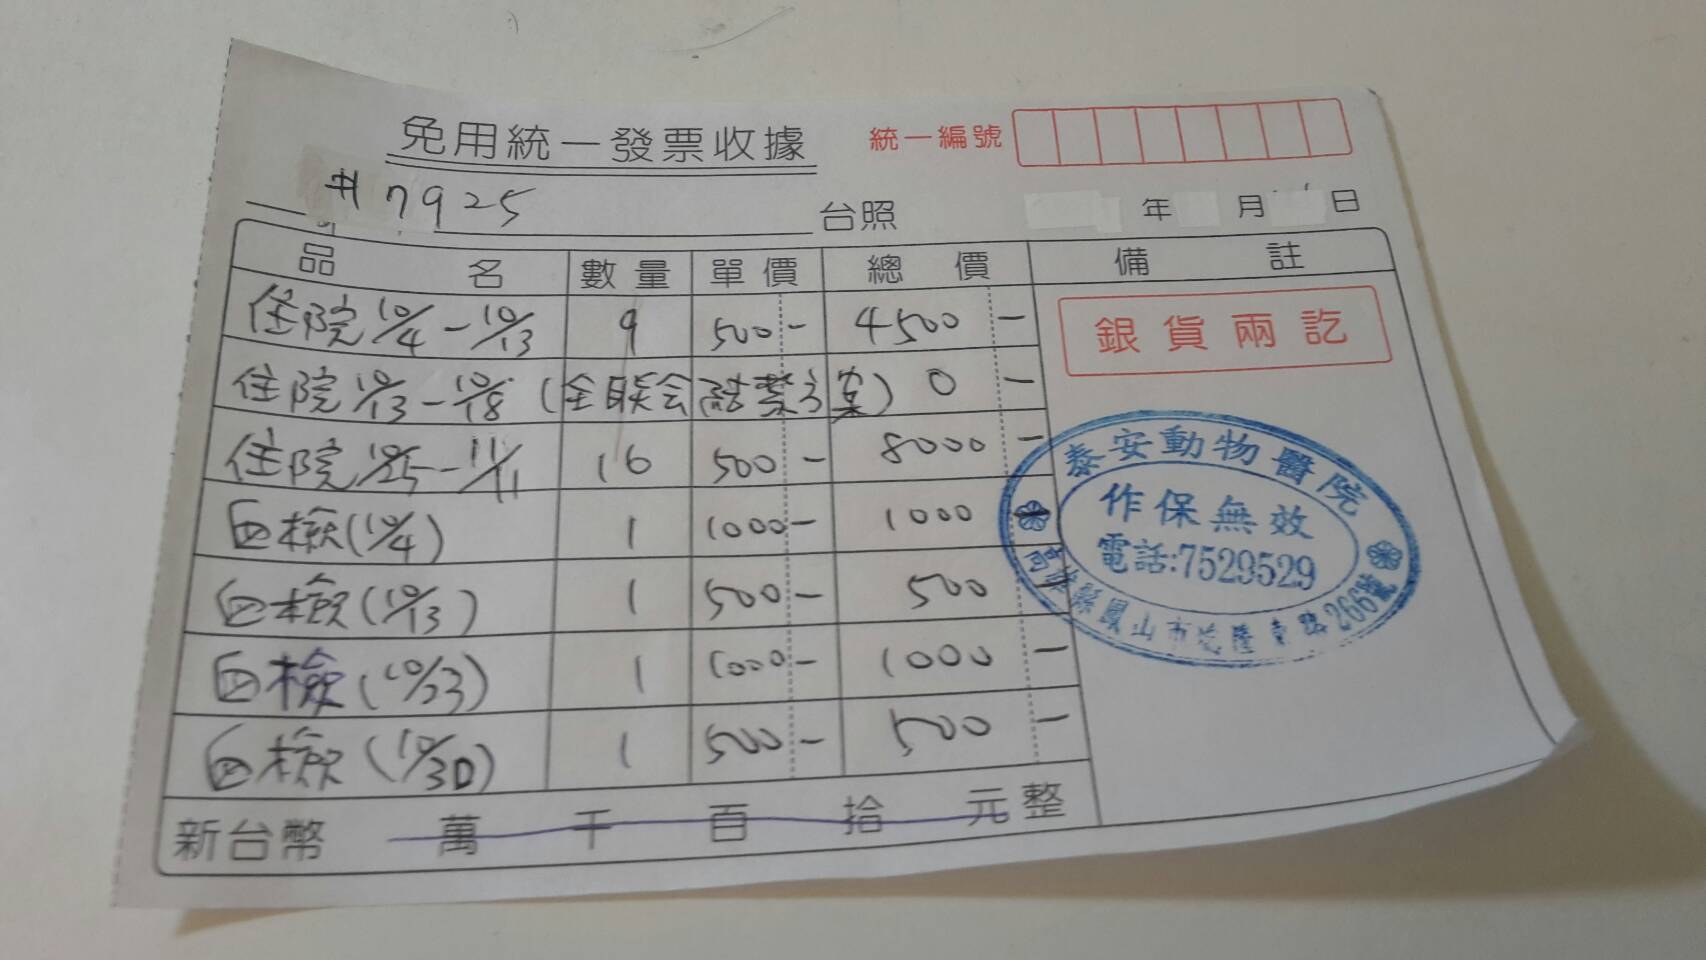 免用統一發票收據
統一編號
#7925 台照 年 月 日
品名 數量 單價 總價 備註
住院10/4-10/13 9 500- 4500 -
銀貨兩訖
住院10/13-10/18 (全联会結業方案) 0 -
住院10/25-11/11 16 500- 8000 -
血檢(10/4) 1 1000- 1000 -
血檢(10/13) 1 500- 500 -
血檢(10/23) 1 1000- 1000 -
血檢(10/30) 1 500- 500 -
新台幣 萬 千 百 拾 元整
泰安動物醫院
作保無效
電話:7529529
高雄縣鳳山市 隆東路266號